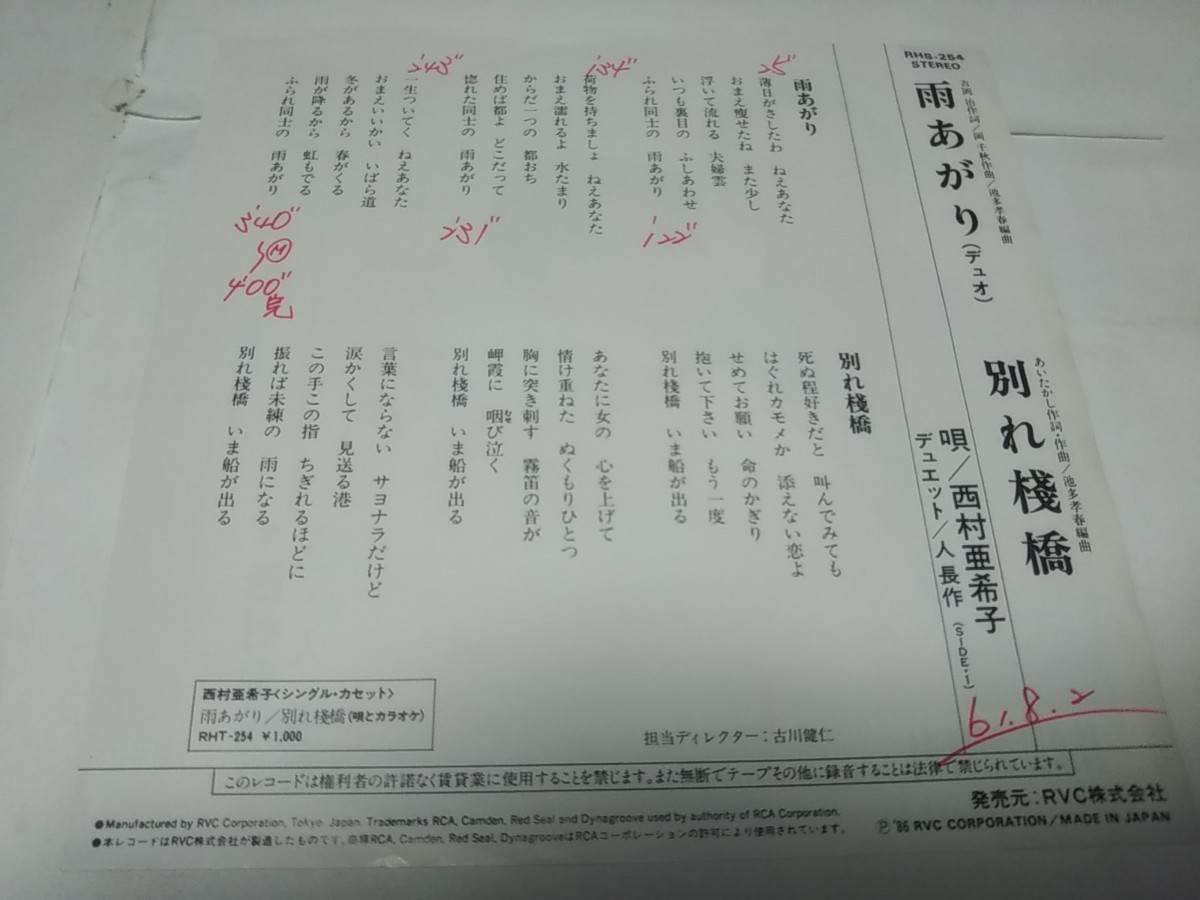 RHS-254
STEREO
雨あがり(デュオ)
吉岡 治作詞/岡 千秋作曲/池多孝春編曲
別れ棧橋
あいたかし作詞・作曲/池多孝春編曲
唄/西村亜希子
デュエット/人 長作(SIDE・1)
61.8.2
雨あがり
25"
薄日がさしたわ ねえあなた
おまえ瘦せたね また少し
浮いて流れる 夫婦雲
いつも裏目の ふしあわせ
ふられ同士の 雨あがり
1'22"
1'34"
荷物を持ちましょ ねえあなた
おまえ濡れるよ 水たまり
からだ一つの 都おち
住めば都よ どこだって
惚れた同士の 雨あがり
2'31"
2'43"
一生ついてく ねえあなた
おまえいいかい いばら道
冬があるから 春がくる
雨が降るから 虹もでる
ふられ同士の 雨あがり
3'40"
M
4'00"
完
別れ棧橋
死ぬ程好きだと 叫んでみても
はぐれカモメか 添えない恋よ
せめてお願い 命のかぎり
抱いて下さい もう一度
別れ棧橋 いま船が出る
あなたに女の 心を上げて
情け重ねた ぬくもりひとつ
胸に突き刺す 霧笛の音が
岬霞に 咽び泣く
むせ
別れ棧橋 いま船が出る
言葉にならない サヨナラだけど
涙かくして 見送る港
この手この指 ちぎれるほどに
振れば未練の 雨になる
別れ棧橋 いま船が出る
西村亜希子〈シングル・カセット〉
雨あがり/別れ棧橋(唄とカラオケ)
RHT-254 ¥1,000
担当ディレクター:古川健仁
このレコードは権利者の許諾なく賃貸業に使用することを禁じます。また無断でテープその他に録音することは法律で禁じられています。
発売元:RVC株式会社
●Manufactured by RVC Corporation, Tokyo, Japan. Trademarks RCA, Camden, Red Seal and Dynagroove used by authority of RCA Corporation.
●本レコードはRVC株式会社が製造したものです。商標RCA, Camden, Red Seal, DynagrooveはRCAコーポレーションの許可により使用されています。
Ⓟ'86 RVC CORPORATION/MADE IN JAPAN